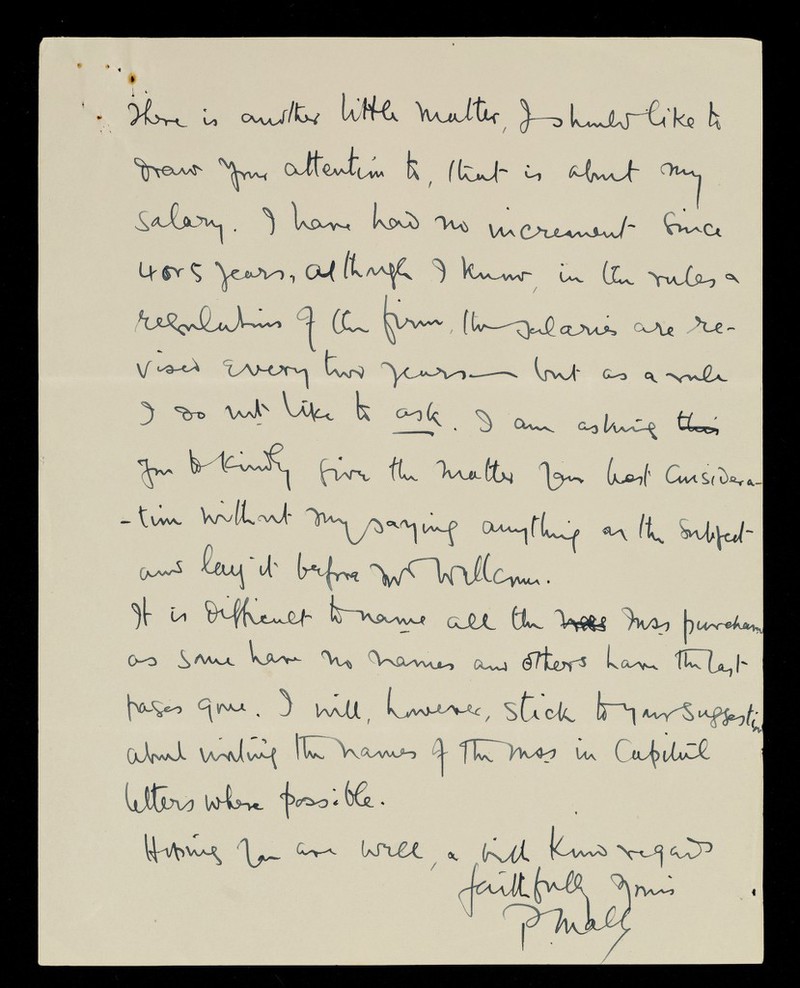 There is another little matter, I should like to
draw your attention to, that is about my
salary. I have had no increment since
4 or 5 years, although I know, in the rules &
regulations of the firm, the salaries are re-
vised every two years — but as a rule
I do not like to ask. I am asking this
you to kindly give the matter your best considera-
-tion without my saying anything on the subject
and lay it before Mr Wellcome.
It is difficult to name all the mss purchased
as some have no names and others have the last
pages gone. I will, however, stick to your suggestion
about writing the names of the mss in Capital
letters where possible.
Hoping you are well, & with kind regards
faithfully yours
P Mall